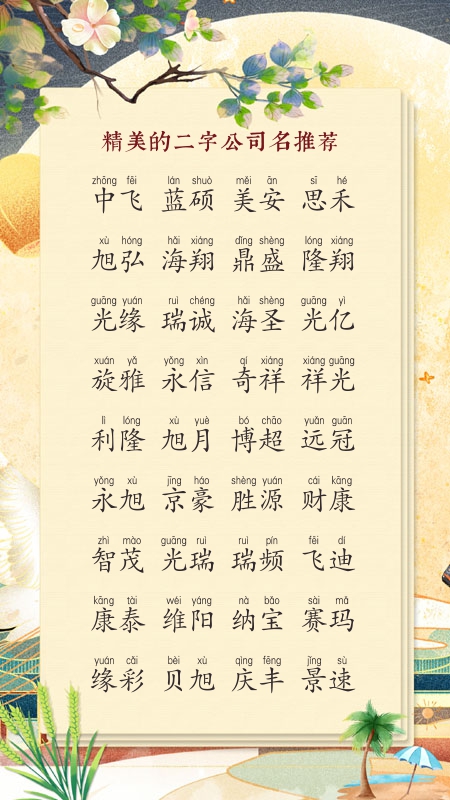 精美的二字公司名推荐
zhōng fēi lán shuò měi ān sī hé
中飞 蓝硕 美安 思禾
xù hóng hǎi xiáng dǐng shèng lóng xiáng
旭弘 海翔 鼎盛 隆翔
guāng yuán ruì chéng hǎi shèng guāng yì
光缘 瑞诚 海圣 光亿
xuán yǎ yǒng xìn qí xiáng xiáng guāng
旋雅 永信 奇祥 祥光
lì lóng xù yuè bó chāo yuǎn guān
利隆 旭月 博超 远冠
yǒng xù jīng háo shèng yuán cái kāng
永旭 京豪 胜源 财康
zhì mào guāng ruì ruì pín fēi dí
智茂 光瑞 瑞频 飞迪
kāng tài wéi yáng nà bǎo sài mǎ
康泰 维阳 纳宝 赛玛
yuán cǎi bèi xù qìng fēng jǐng sù
缘彩 贝旭 庆丰 景速